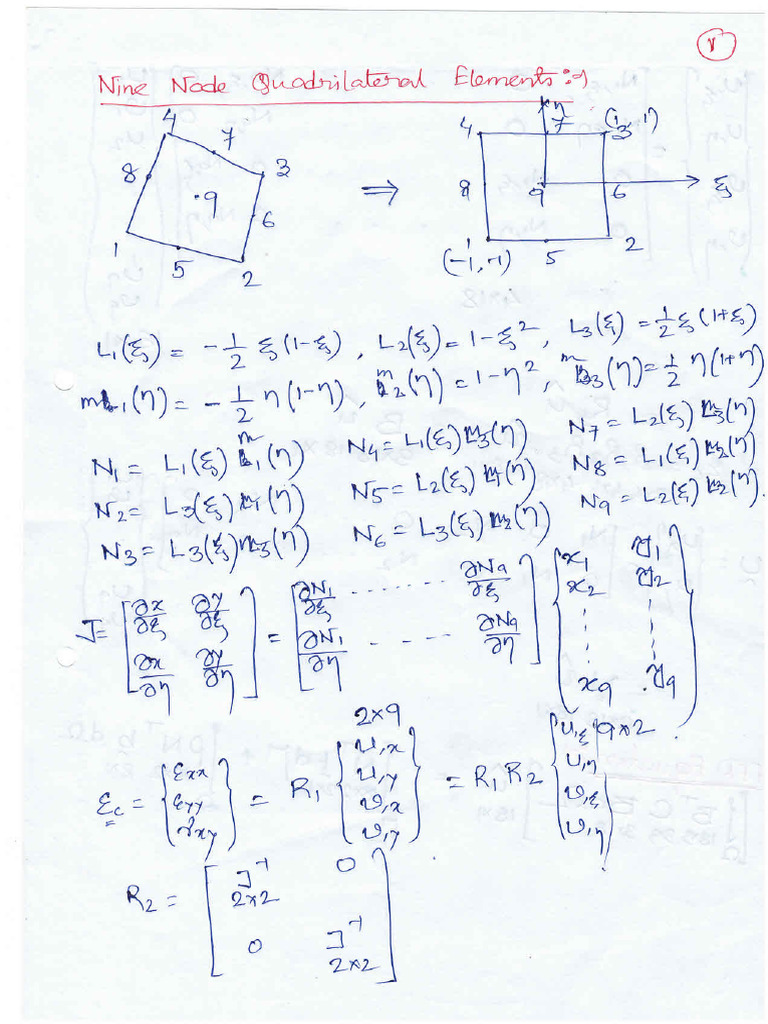 Nine Node Quadrilateral Elements :→
4 7 3 8 9 6 1 5 2
⇒
η 4 7 (1, 1) 3 8 9 6 ξ 1 (-1, -1) 5 2
L1(ξ) = -1/2 ξ(1-ξ), L2(ξ) = 1-ξ², L3(ξ) = 1/2 ξ(1+ξ)
m1(η) = -1/2 η(1-η), m2(η) = 1-η², m3(η) = 1/2 η(1+η)
N1 = L1(ξ) m1(η) N4 = L1(ξ) m3(η) N7 = L2(ξ) m3(η)
N2 = L3(ξ) m1(η) N5 = L2(ξ) m1(η) N8 = L1(ξ) m2(η)
N3 = L3(ξ) m3(η) N6 = L3(ξ) m2(η) N9 = L2(ξ) m2(η).
J = [∂x/∂ξ ∂y/∂ξ ; ∂x/∂η ∂y/∂η] = [∂N1/∂ξ ....... ∂N9/∂ξ ; ∂N1/∂η ..... ∂N9/∂η] {x1 y1 ; x2 y2 ; ⋮ ⋮ ; x9 y9}
2×9 9×2
εc = {εxx ; εyy ; γxy} = R1 {u,x ; u,y ; v,x ; v,y} = R1 R2 {u,ξ ; u,η ; v,ξ ; v,η}
R2 = [J⁻¹ 2×2 0 ; 0 J⁻¹ 2×2]